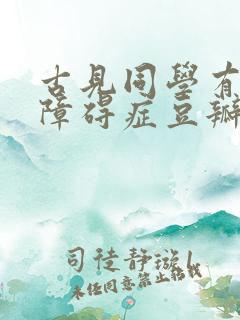 古見同學有
障碍症豆瓣
司徒静璇l
未经同意禁止转载